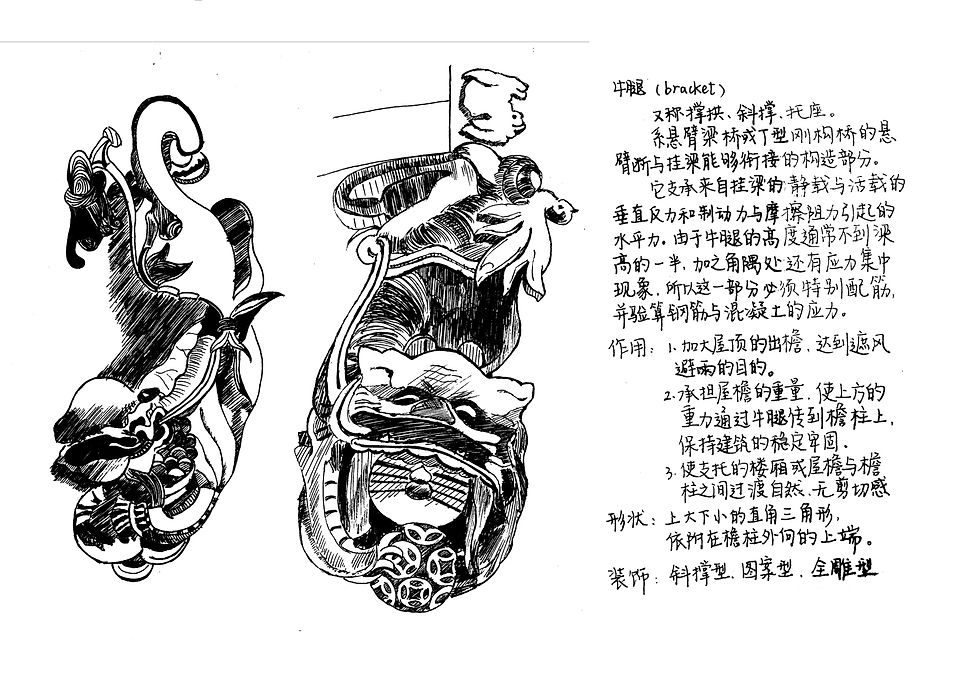 牛腿（bracket）
又称撑拱、斜撑、托座。
系悬臂梁桥或T型刚构桥的悬
臂断与挂梁能够衔接的构造部分。
它支承来自挂梁的静载与活载的
垂直反力和制动力与摩擦阻力引起的
水平力。由于牛腿的高度通常不到梁
高的一半，加之角隅处还有应力集中
现象，所以这一部分必须特别配筋，
并验算钢筋与混凝土的应力。
作用：1.加大屋顶的出檐，达到遮风
避雨的目的。
2.承担屋檐的重量，使上方的
重力通过牛腿传到檐柱上，
保持建筑的稳定牢固。
3.使支托的楼厢或屋檐与檐
柱之间过渡自然、无剪切感
形状：上大下小的直角三角形，
依附在檐柱外向的上端。
装饰：斜撑型、图案型、全雕型